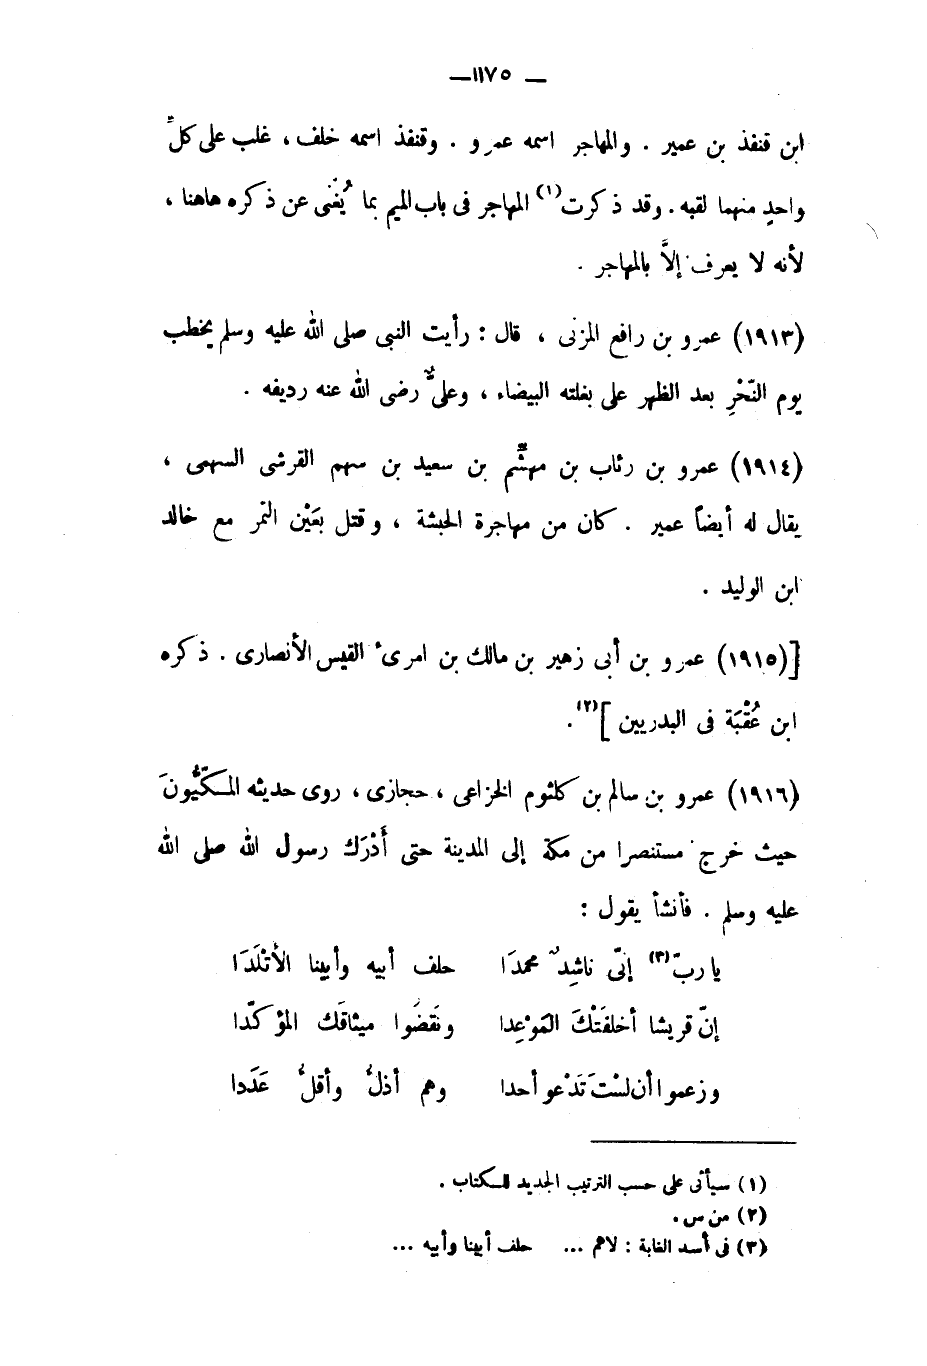 — ١١٧٥ —
ابن قنفذ بن عمير . والمهاجر اسمه عمرو . وقنفذ اسمه خلف ، غلب على كلِّ
واحدٍ منهما لقبه . وقد ذكرت (١) المهاجر فى باب الميم بما يُغْنى عن ذكره هاهنا ،
لأنه لا يعرف إلاَّ بالمهاجر .
(١٩١٣) عمرو بن رافع المزنى ، قال : رأيت النبى صلى الله عليه وسلم يخطب
يوم النَّحْرِ بعد الظهر على بغلته البيضاء ، وعلىٌّ رضى الله عنه رديفه .
(١٩١٤) عمرو بن رئاب بن مهشّم بن سعيد بن سهم القرشى السهمى ،
يقال له أيضاً عمير . كان من مهاجرة الحبشة ، وقتل بعَيْن التمر مع خالد
ابن الوليد .
[(١٩١٥) عمرو بن أبى زهير بن مالك بن امرىء القيس الأنصارى . ذكره
ابن عُقْبَة فى البدريين ] (٢) .
(١٩١٦) عمرو بن سالم بن كلثوم الخزاعى ، حجازى ، روى حديثه المكّيُّونَ
حيث خرج مستنصرا من مكة إلى المدينة حتى أَدْرَك رسول الله صلى الله
عليه وسلم . فأنشأ يقول :
يا ربّ (٣) إنّى ناشِدٌ محمدَا حلف أبيه وأبينا الأَتْلَدَا
إنّ قريشا أخلفَتْكَ المَوْعِدا ونَقضُوا ميثاقَك المؤكدّا
وزعموا أن لسْتَ تَدْعو أحدا وهم أذلُّ وأقلُّ عَدَدا
(١) سيأتى على حسب الترتيب الجديد للكتاب .
(٢) من س .
(٣) فى أسد الغابة : لاهم ... حلف أبينا وأبيه ...